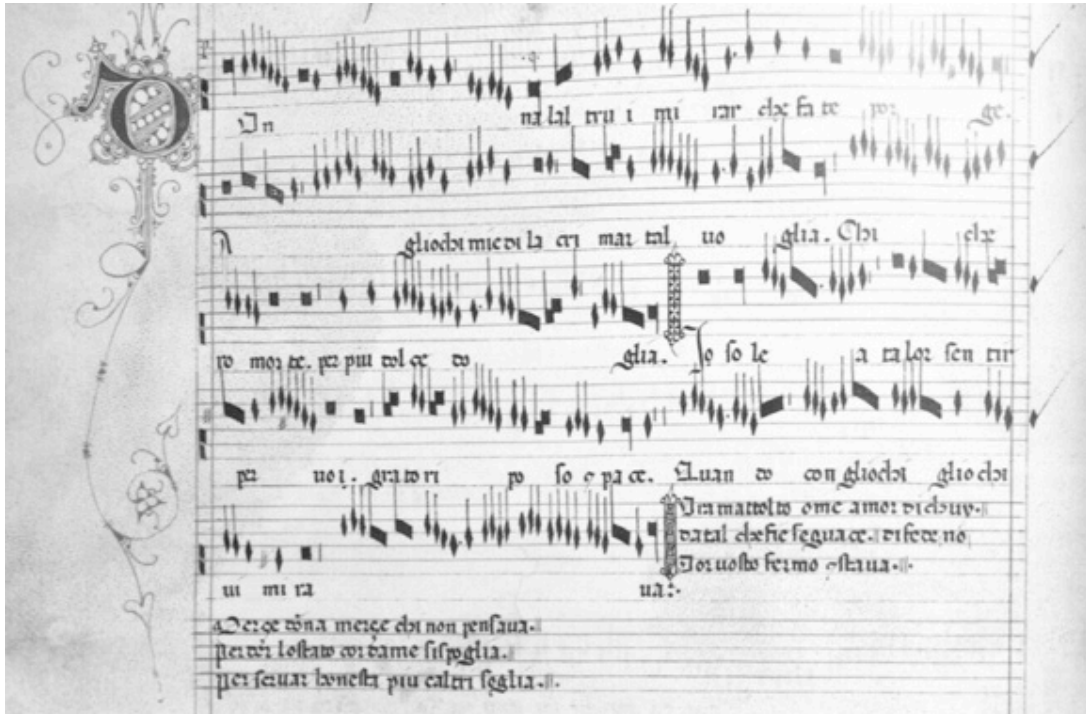 Don na lal tru i mi rar che fa te por ge.
A gliochi mie di la cri mar tal uo glia. Chi che
ro mor te. per piu dol ce do glia. Jo so le a ta lor sen tir
per uoi. gra to ri po so e pa ce. Quan do con gliochi gliochi
ui mi ra ua:
Ora mattolto ome amor di chuy.
da tal che fie seguace. di fede, no
Jor uostro fermo staua.
Merçe dõna merçe chi non pensaua.
per dõr lostato cor dame sispoglia.
per seruar honesta piu caltri soglia.